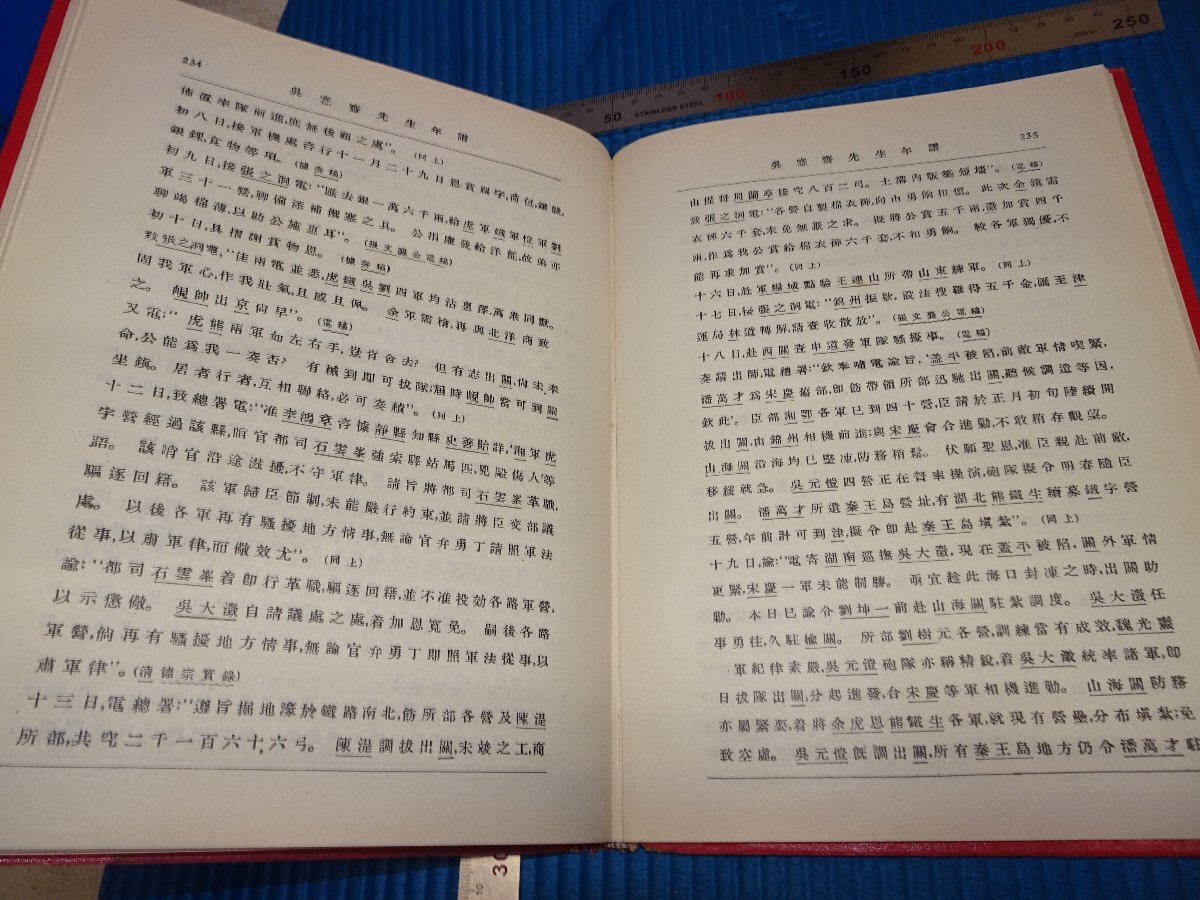 234
吳愙齋先生年譜
佈置率隊前進,庶無後顧之慮”。(同上)
初八日,接軍機處咨行十一月二十九日恩賞福字,荷包,銀錢,
銀錁,食物等項。(據奏稿)
初九日,接張之洞電:“匯去銀一萬六千兩,給虎軍鐵軍愷軍劉
軍三十一營,聊備添補禦寒之具。公捐廉發給洋氈,故弟亦
聊竭棉薄,以助公施惠耳”。(張文襄公電稿)
初十日,具摺謝賞物恩。(據奏稿)
致張之洞電,“佳兩電並悉,虎鐵吳劉四軍均沾惠澤,萬衆同歡。
固我軍心,作我壯氣,且感且佩。余軍需槍,再與北洋商致
之。峴帥出京尚早”。(電稿)
又電:“虎熊兩軍如左右手,豈肯舍去?但有志出關,尙未奉
命,公能爲我一奏否?有械到卽可拔隊;屆時峴帥當可到關
坐鎮。居者行者,互相聯絡,必可奏績”。(同上)
十二日,致總署電:“准李鴻章咨據靜縣知縣史善貽詳,‘湘軍虎
字營經過該縣,哨官都司石雲峯強索驛站馬匹,兇毆傷人’等
語。該哨官沿途滋擾,不守軍律。請旨將都司石雲峯革職,
驅逐回籍。該軍歸臣節制,未能嚴行約束,並請將臣交部議
處。以後各軍再有騷擾地方情事,無論官弁勇丁請照軍法
從事,以肅軍律,而儆效尤”。(同上)
諭:“都司石雲峯着卽行革職,驅逐回籍,並不准投効各路軍營,
以示懲儆。吳大澂自請議處之處,着加恩寬免。嗣後各路
軍營,倘再有騷擾地方情事,無論官弁勇丁卽照軍法從事,以
肅軍律”。(淸德宗實錄)
十三日,電總署:“遵旨掘地濠於鐵路南北,飭所部各營及陳湜
所部,共究二千一百六十六弓。陳湜調拔出關,未竣之工,商
235
吳愙齋先生年譜
山提督周蘭亭接究八百二弓。土溝內版築短墻”。(電稿)
致張之洞電:“各營自製棉衣褲,向由勇餉扣價。此次余鎮需
衣褲六千套,未免無厭之求。擬將公賞五千兩,澂加賞四千
兩,作爲我公賞給棉衣褲六千套,不扣勇餉。較各軍獨優,不
能再求加賞”。(同上)
十六日,赴軍糧城點驗王連山所帶山東練軍。(同上)
十七日,接張之洞電:“錦州振欵,設法搜羅得五千金,匯至津
運局林道轉解,請查收散放”。(張文襄公電稿)
十八日,赴西關查申道發軍隊騷擾事。(電稿)
奏請出師,電總署:“欽奉嘯電諭旨,‘蓋平被陷,前敵軍情喫緊,
潘萬才爲宋慶舊部,卽飭帶領所部迅馳出關,聽候調遣等因,
欽此’。臣部湘鄂各軍已到四十營,臣請於正月初旬陸續開
拔出關,由錦州相機前進;與宋慶會合進勦,不敢稍存觀望。
山海關沿海均已堅凍,防務稍鬆。伏願聖恩,准臣親赴前敵,
移緩就急。吳元愷四營正在督率操演,砲隊擬令明春隨臣
出關。潘萬才所遺秦王島營址,有湖北熊鐵生續募鐵字營
五營,年前計可到津,擬令卽赴秦王島塡紮”。(同上)
十九日,諭:“電寄湖南巡撫吳大澂,現在蓋平被陷,關外軍情
更緊,宋慶一軍未能制勝。亟宜趁此海口封凍之時,出關助
勦。本日已諭令劉坤一前赴山海關駐紮調度。吳大澂任
事勇往,久駐楡關。所部劉樹元各營,訓練當有成效,魏光燾
軍紀律素嚴,吳元愷砲隊亦稱精銳,着吳大澂統率諸軍,卽
日拔隊出關,分起進發,合宋慶等軍相機進勦。山海關防務
亦屬緊要,着將余虎恩熊鐵生各軍,就現有營壘,分布塡紮;免
致空虛。吳元愷旣調出關,所有秦王島地方仍令潘萬才駐
50
STAINLESS STEEL
100
150
200
250